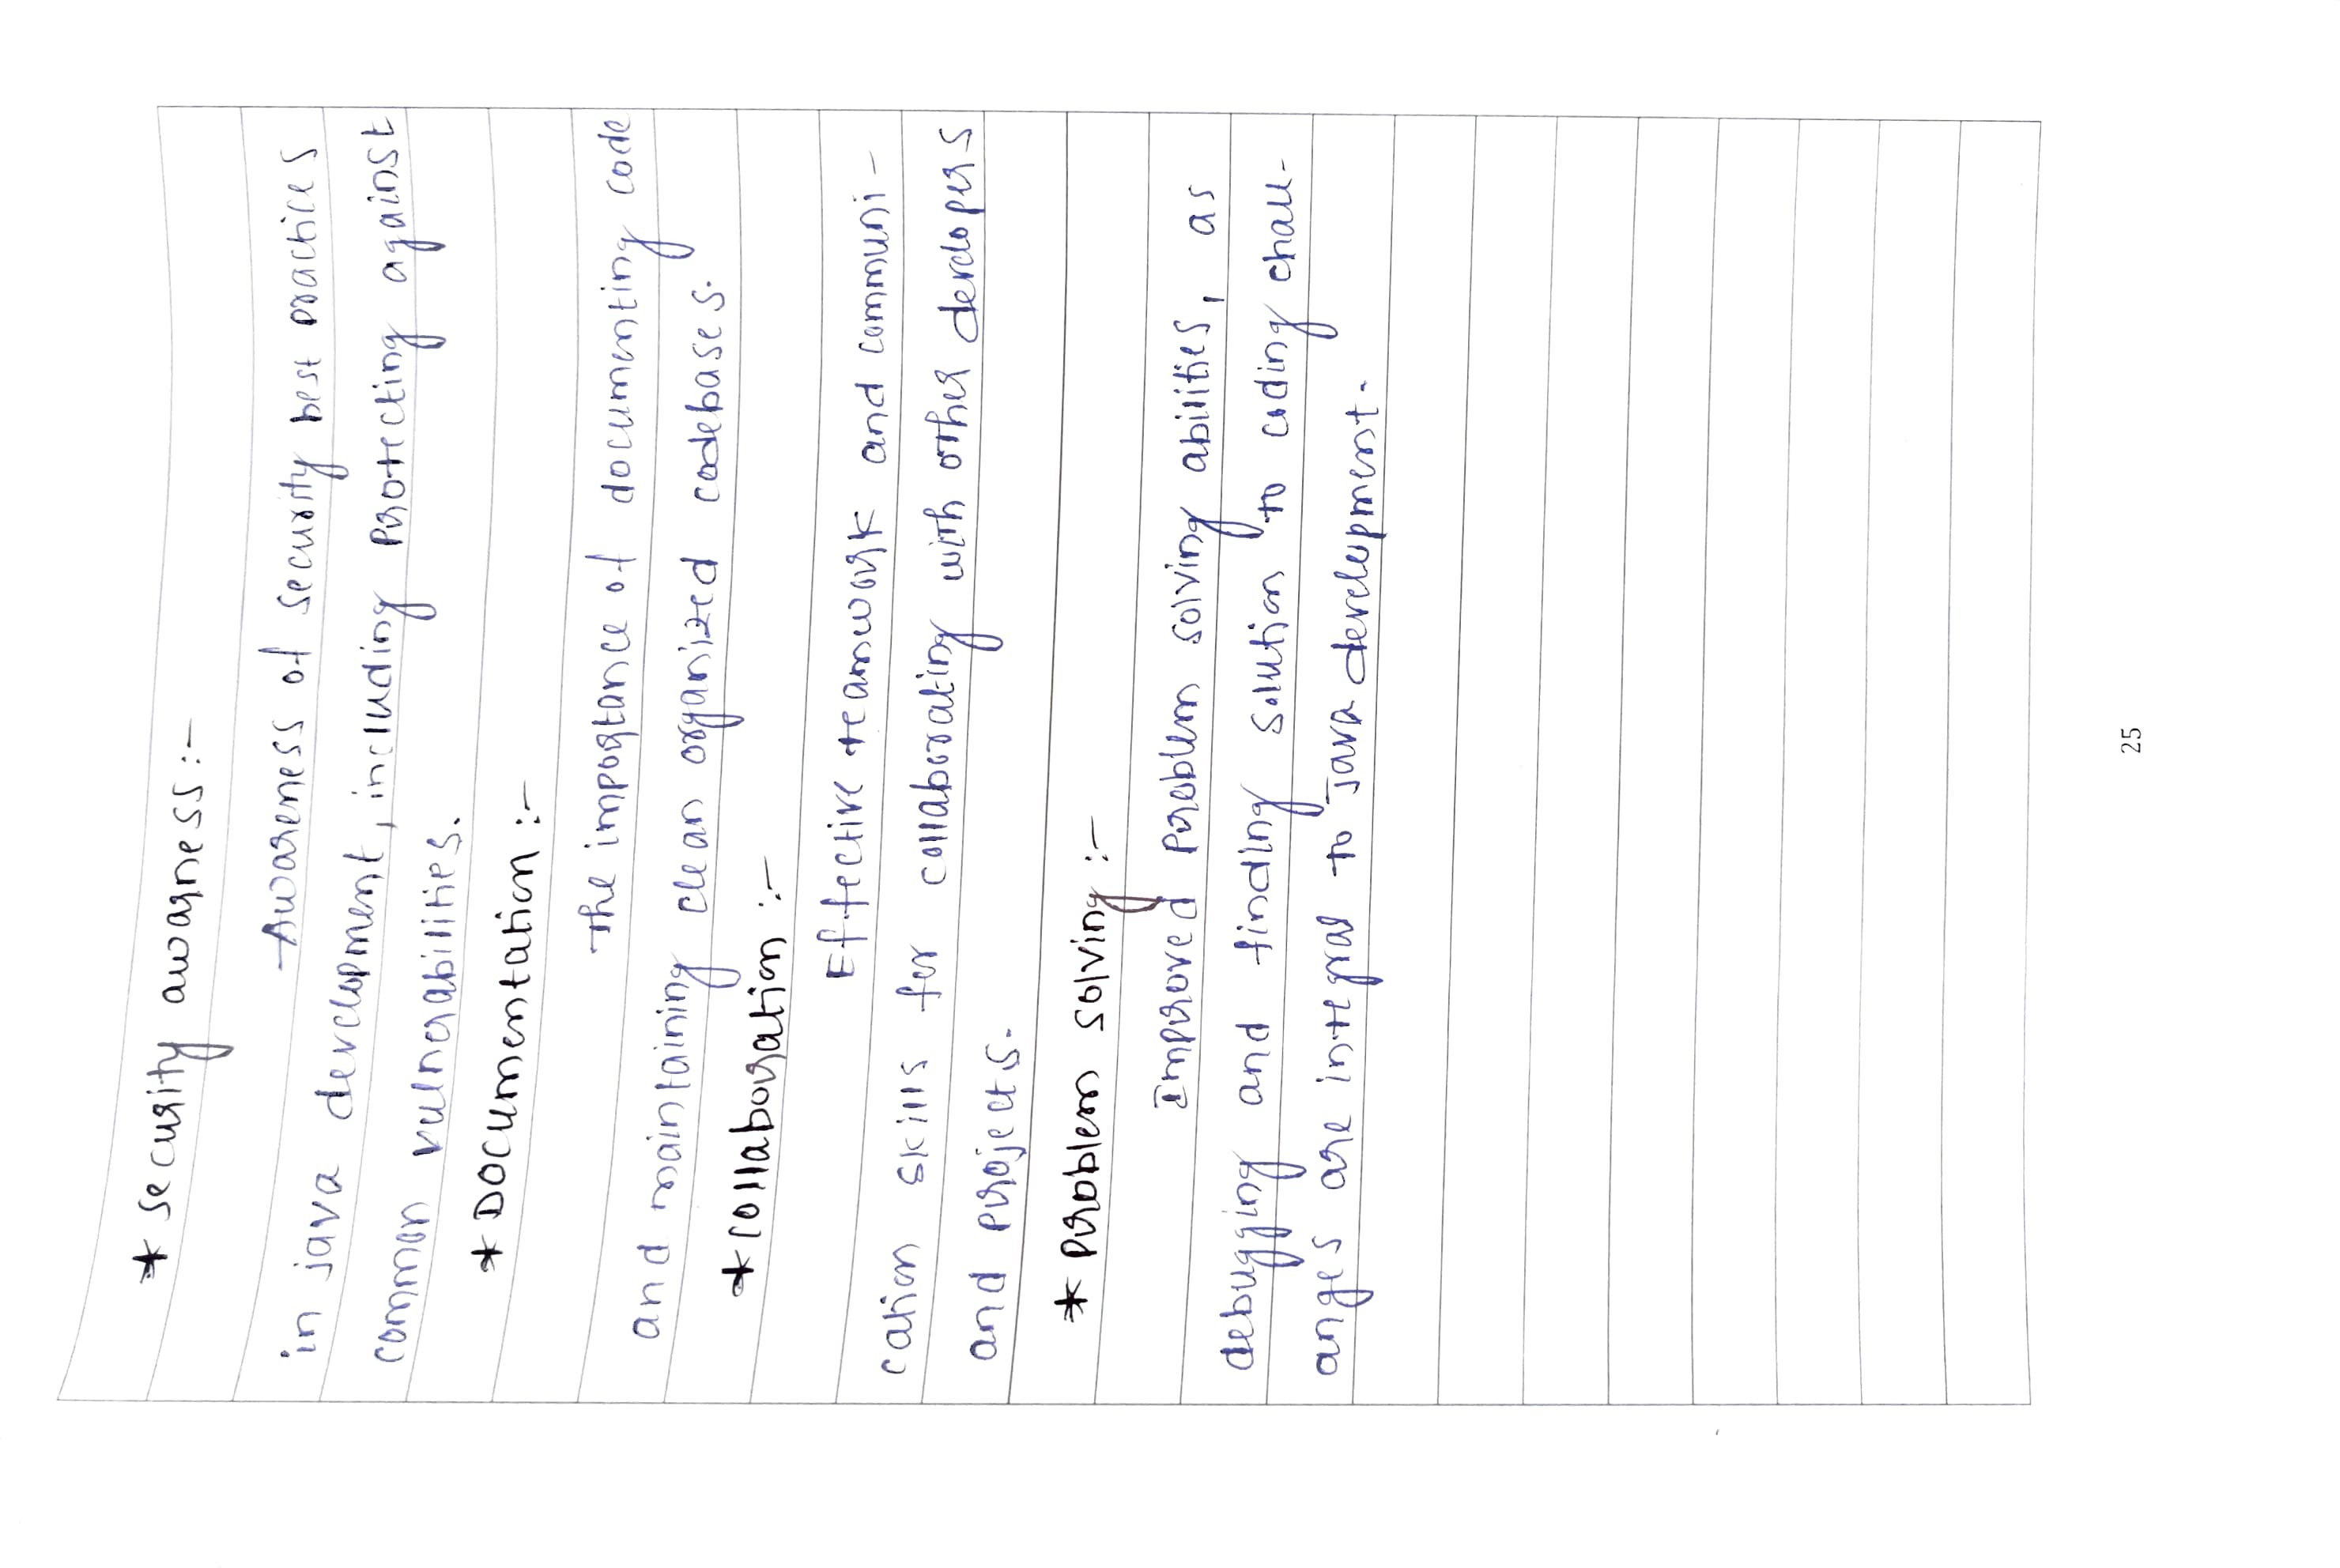 * security awarness :-
Awareness of security best practices
in java development, including protecting against
common vulnerabilities.
* Documentation :-
The importance of documenting code
and maintaining clean organized codebases.
* collaboration :-
Effective teamwork and communi-
cation skills for collaborating with other developers
and projects.
* problem solving :-
Improved problem solving abilities, as
debugging and finding solution to coding chall-
anges are integral to Java development.
25